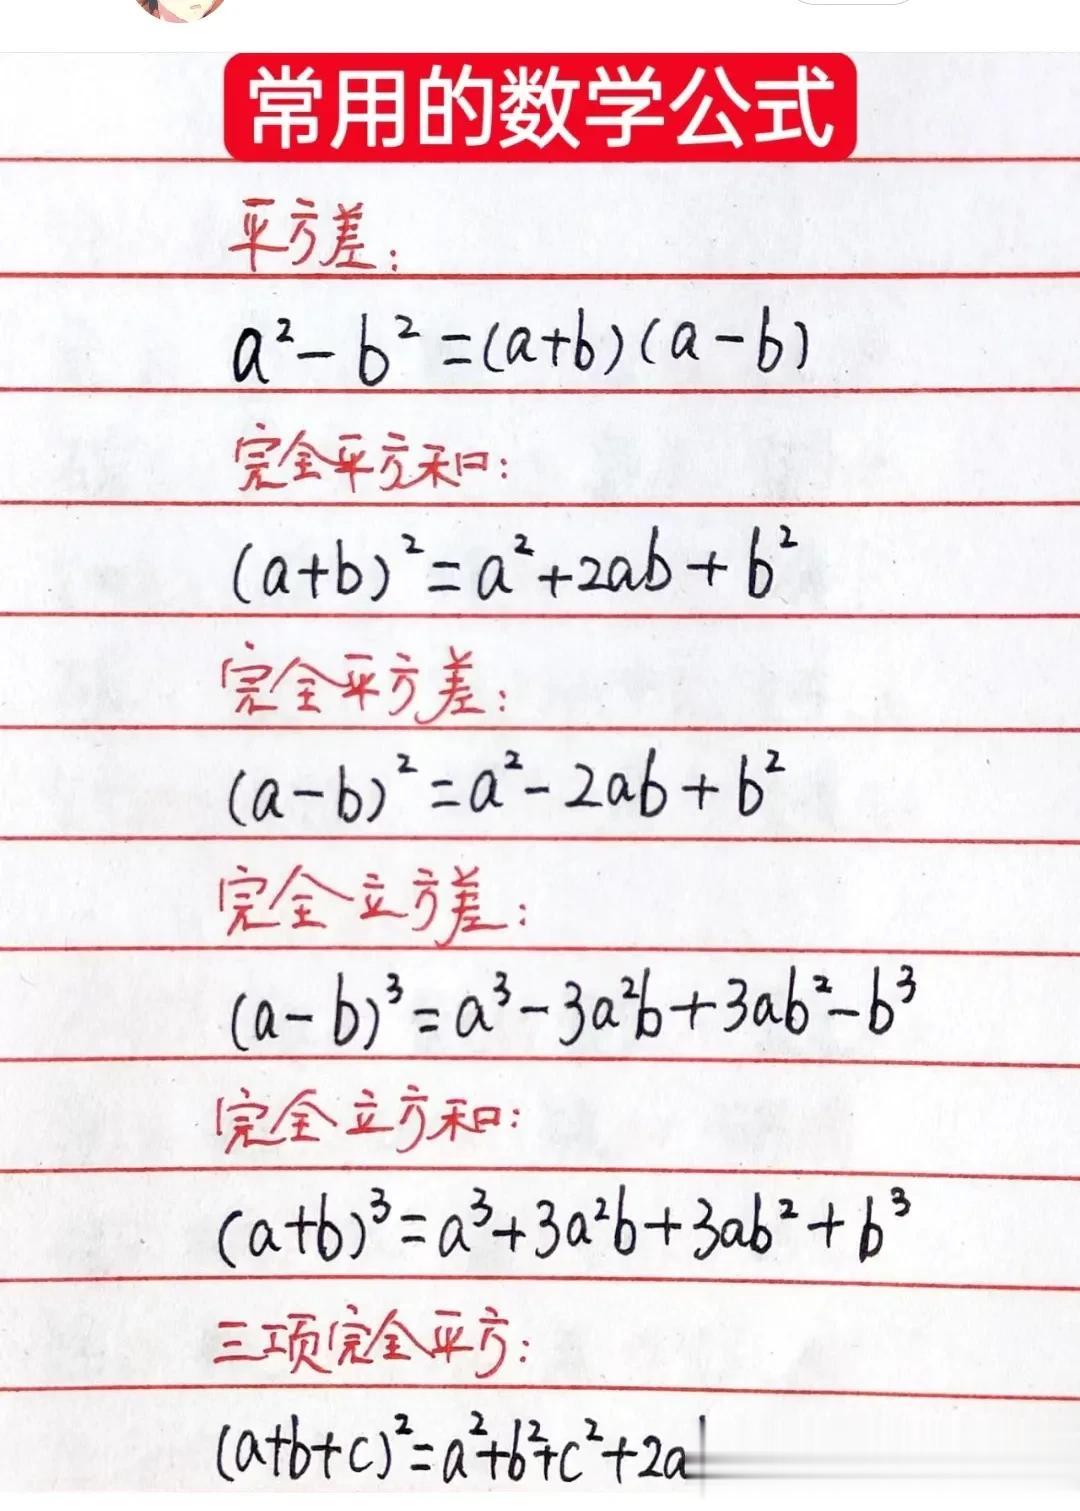 常用的数学公式
平方差:
a²-b²=(a+b)(a-b)
完全平方和:
(a+b)²=a²+2ab+b²
完全平方差:
(a-b)²=a²-2ab+b²
完全立方差:
(a-b)³=a³-3a²b+3ab²-b³
完全立方和:
(a+b)³=a³+3a²b+3ab²+b³
三项完全平方:
(a+b+c)²=a²+b²+c²+2a